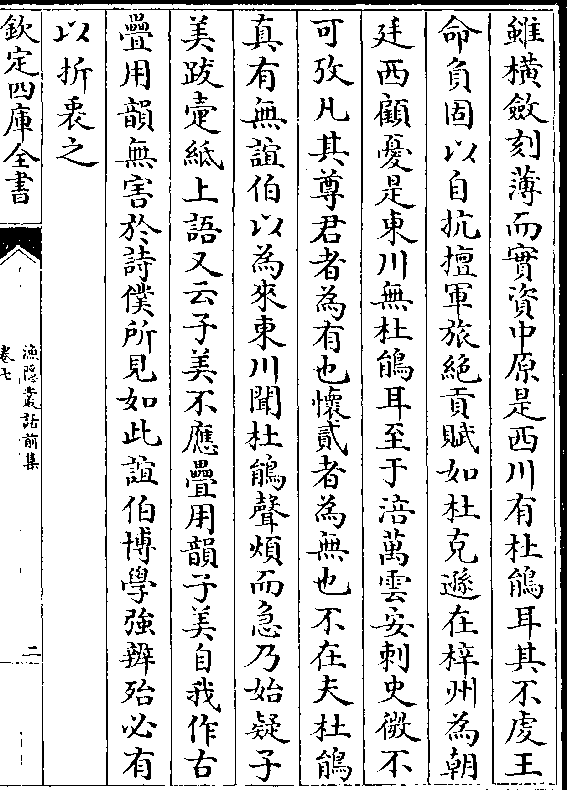 雖橫斂刻薄而實資中原是西川有杜鵑耳其不虔王
命負固以自抗擅軍旅絶貢賦如杜克遜在梓州為朝
廷西顧憂是東川無杜鵑耳至于涪萬雲安刺史微不
可攷凡其尊君者為有也懷貳者為無也不在夫杜鵑
真有無誼伯以為來東川聞杜鵑聲煩而急乃始疑子
美跋疐紙上語又云子美不應疊用韻子美自我作古
疊用韻無害於詩僕所見如此誼伯博學強辨殆必有
以折衷之
欽定四庫全書
漁隱叢話前集
卷七
二